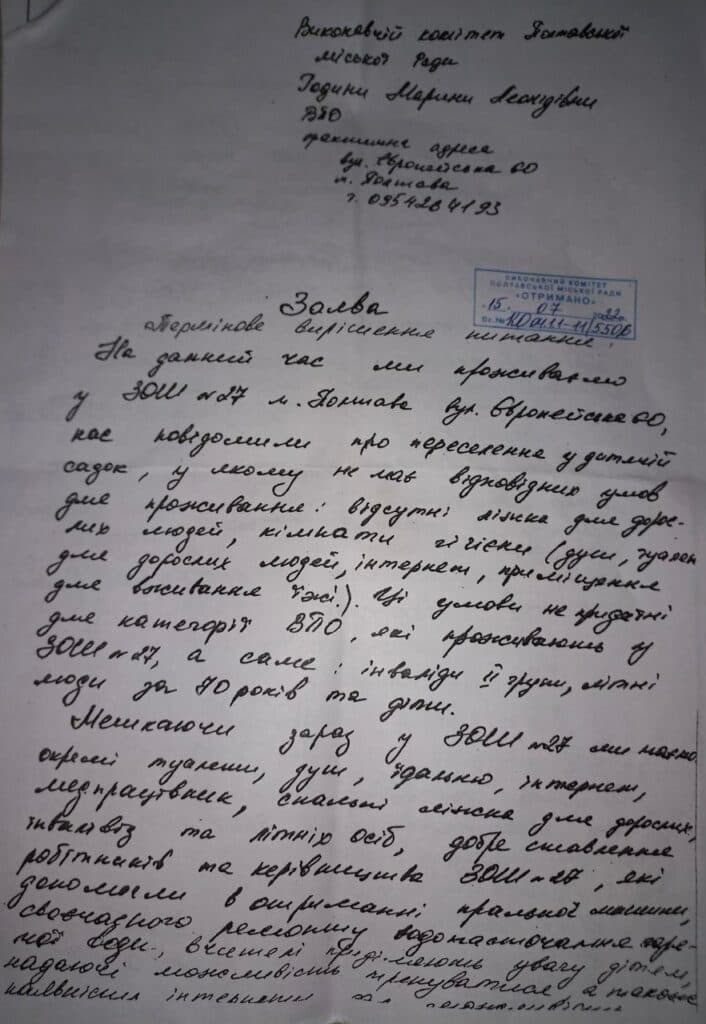 Виконавчій комітет Полтавської
міської Ради
Години Марини Леонідівни
ВПО
фактична адреса
вул. Європейська 60
м. Полтава
т. 0954264193
ВИКОНАВЧИЙ КОМІТЕТ
ПОЛТАВСЬКОЇ МІСЬКОЇ РАДИ
«ОТРИМАНО»
15 07 2022
Заява
"Термінове вирішення питання"
На данний час ми проживаємо
у ЗОШ №27 м. Полтава вул. Європейська 60,
нас повідомили про переселення у дитячій
садок, у якому не має відповідних умов
для проживання: відсутні ліжка для дорос-
лих людей, кімнати гігієни (душ, туалет
для дорослих людей, інтернет, приміщення
для вживання їжі.). Ці умови не придатні
для категорії ВПО, які проживають у
ЗОШ №27, а саме: інваліди II групи, літні
люди за 70 років та діти.
Мешкаючи зараз у ЗОШ №27 ми маємо
окремі туалети, душ, їдальню, інтернет,
медпрацівник, спальні ліжка для дорослих,
інвалівіз та літніх осіб, добре ставлення
робітників та керівництва ЗОШ №27, які
допомогли в отриманні пральної машини,
своєчасного ремонту водопостачання гаря-
чої води, вчителі приділяють увагу дітям,
надаючі можливість тренуватися а також
наявністю інтернета